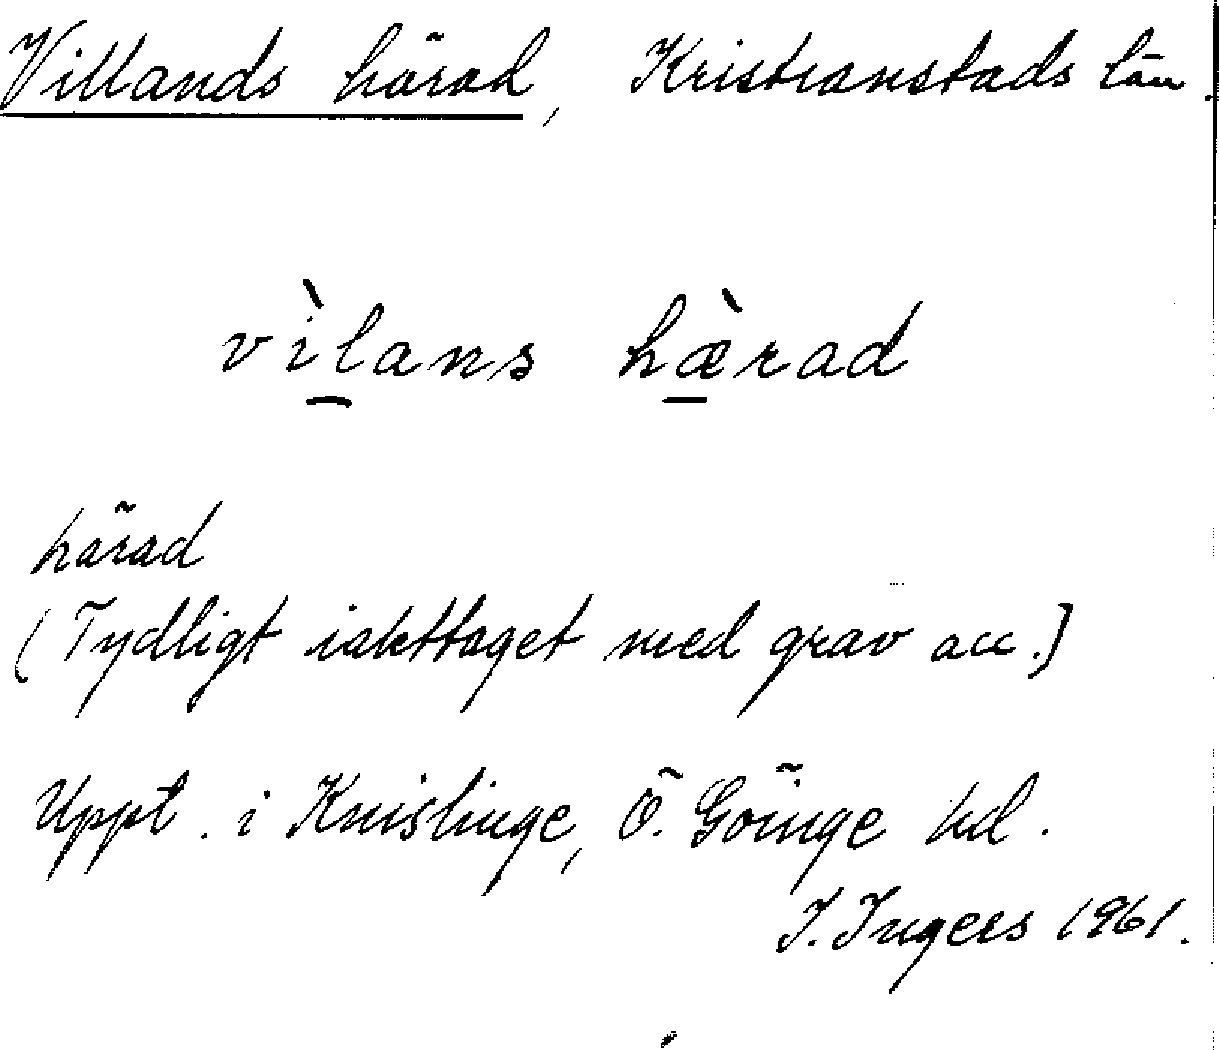 Villands härad, Kristianstads län.
vìlans hæ̀rad
härad
(Tydligt iakttaget med grav acc.)
Uppt. i Knislinge, Ö. Göinge hd.
I. Ingers 1961.